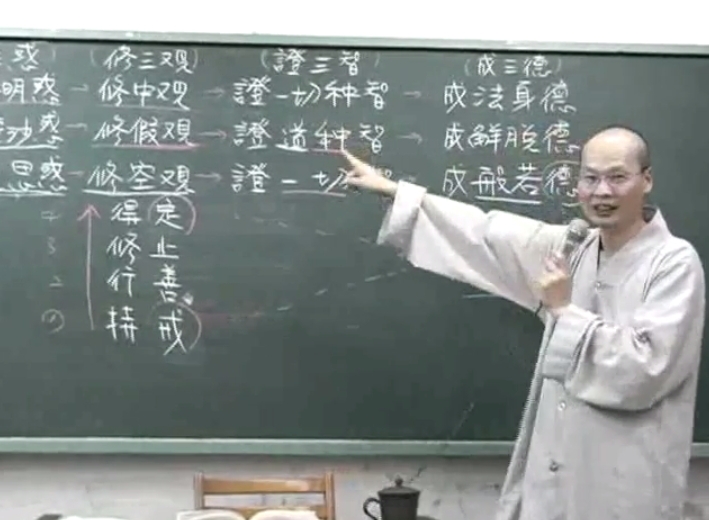 惑) (修三观) (證三智) (成三德)
明惑 → 修中观 → 證一切种智 → 成法身德
沙惑 → 修假观 → 證道种智 → 成解脱德
思惑 → 修空观 → 證一切 成般若德
得定
修止
行善
持戒